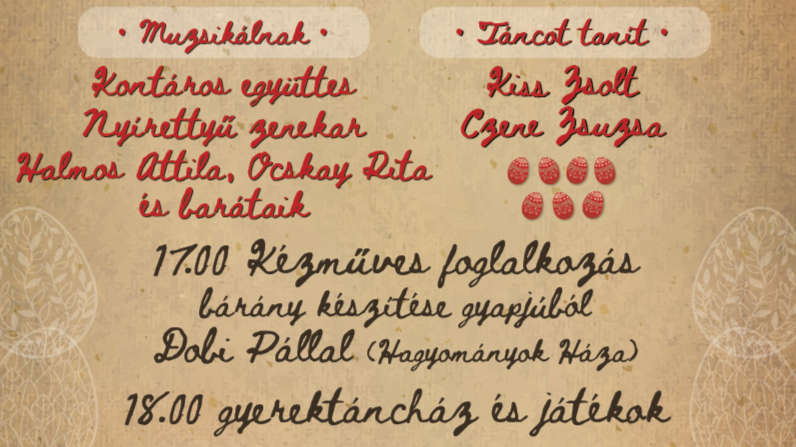 • Muzsikálnak •
Kontáros együttes
Nyírettyű zenekar
Halmos Attila, Ocskay Rita
és barátaik
• Táncot tanít •
Kiss Zsolt
Czene Zsuzsa
17.00 Kézműves foglalkozás
bárány készítése gyapjúból
Dobi Pállal (Hagyományok Háza)
18.00 gyerektáncház és játékok